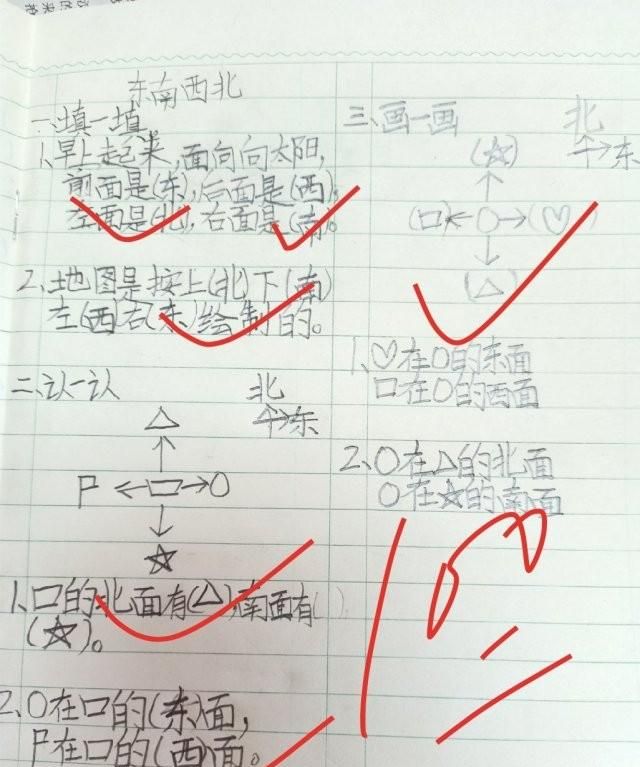 东南西北
一、填一填
1、早上起来,面向向太阳,
前面是(东),后面是(西),
左面是(北),右面是(南)。
2、地图是按上(北)下(南)
左(西)右(东)绘制的。
二、认一认
北
东
1、口的北面有(△),南面有( )
(☆)。
2、O在口的(东)面,
P在口的(西)面。
三、画一画
北
东
(☆)
(口) O (♡)
(△)
1、♡在O的东面
口在O的西面
2、O在△的北面
O在☆的南面
100